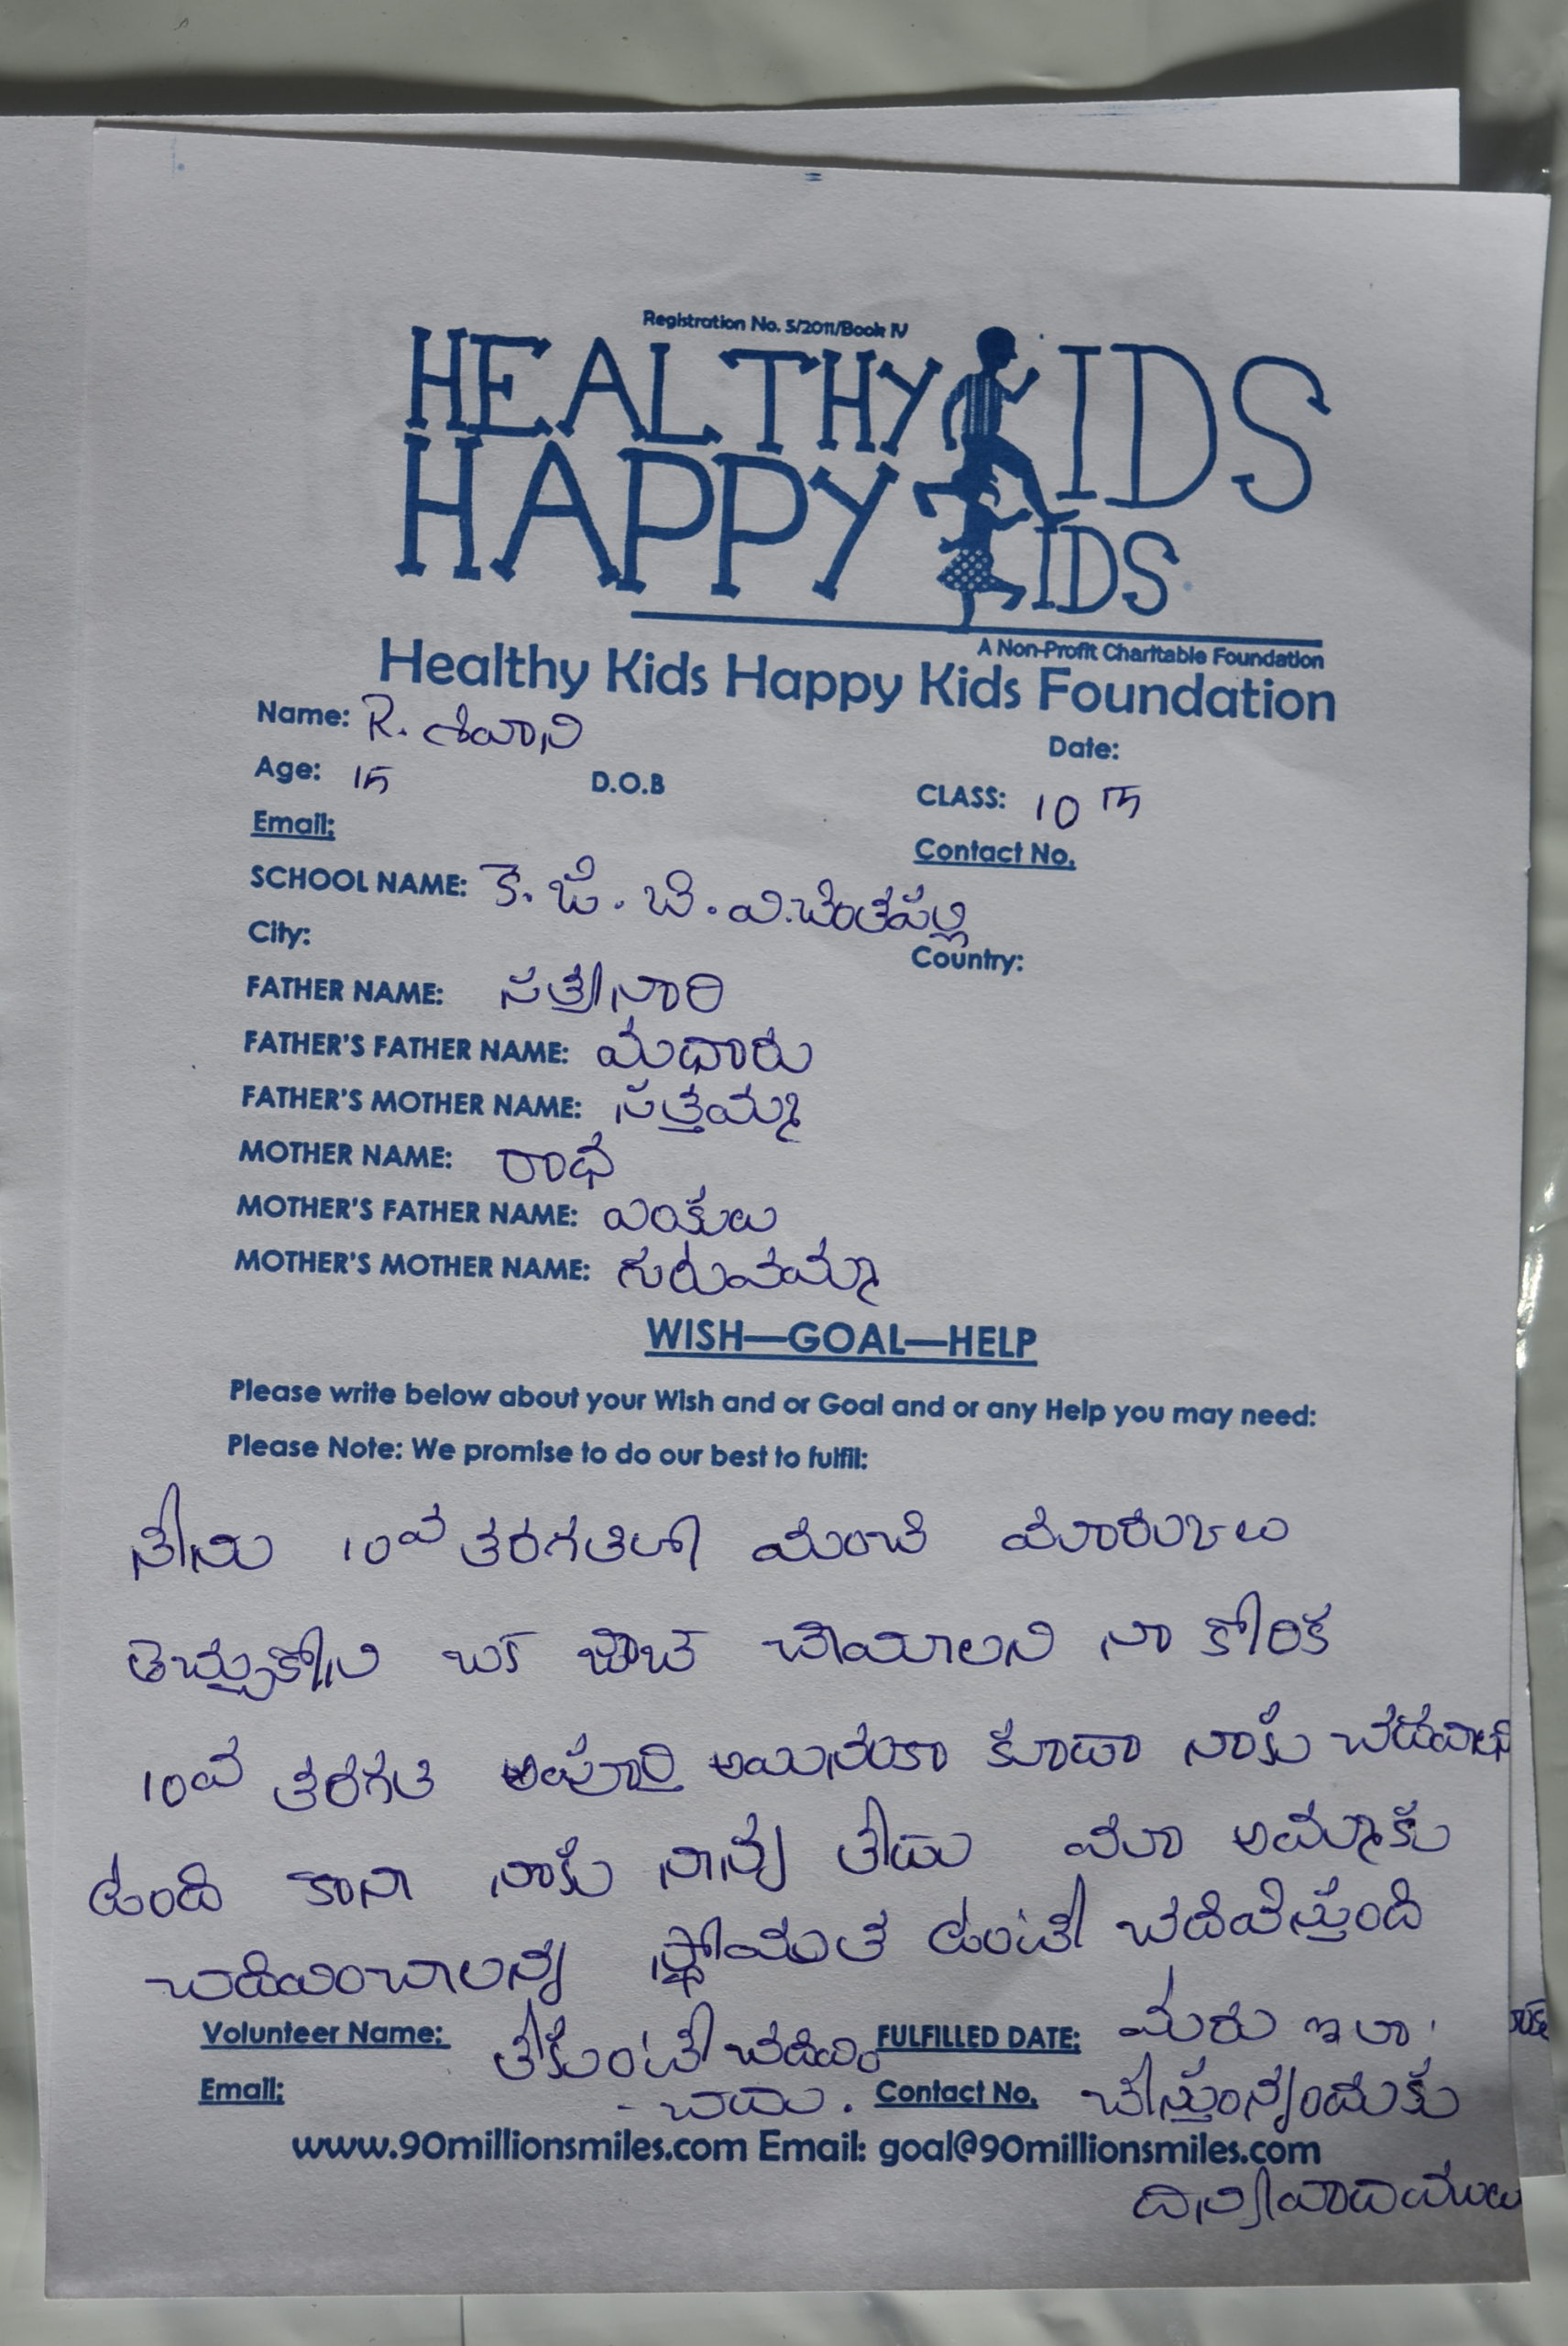 Registration No. 5/2011/Book IV
HEALTHY KIDS
HAPPY KIDS
A Non-Profit Charitable Foundation
Healthy Kids Happy Kids Foundation
Name: R. శివాని
Date:
Age: 15 D.O.B CLASS: 10 th
Email: Contact No.
SCHOOL NAME: కె. జి. బి. వి. చింతపల్లి
City: Country:
FATHER NAME:
FATHER'S FATHER NAME: మధారు
FATHER'S MOTHER NAME: సత్తెమ్మ
MOTHER NAME: రాధ
MOTHER'S FATHER NAME: వెంకులు
MOTHER'S MOTHER NAME: గురువమ్మా
WISH—GOAL—HELP
Please write below about your Wish and or Goal and or any Help you may need:
Please Note: We promise to do our best to fulfil:
నేను 10వ తరగతిలో మంచి మారుకులు
తెచ్చుకోని ఒక జాబ్ చేయాలని నా కోరిక
10వ తరగతి అయినంకా కూడా నాకు చదవాలని
ఉంది కాని నాకు నాన్న లేడు మా అమ్మాకు
చదివించాలన్న స్థోమత ఉంటే చదివిస్తుంది
Volunteer Name: లేకుంటే చదివిం FULFILLED DATE: మరు ఇలా
Email: - చదు. Contact No. చేస్తున్నందుకు
www.90millionsmiles.com Email: goal@90millionsmiles.com